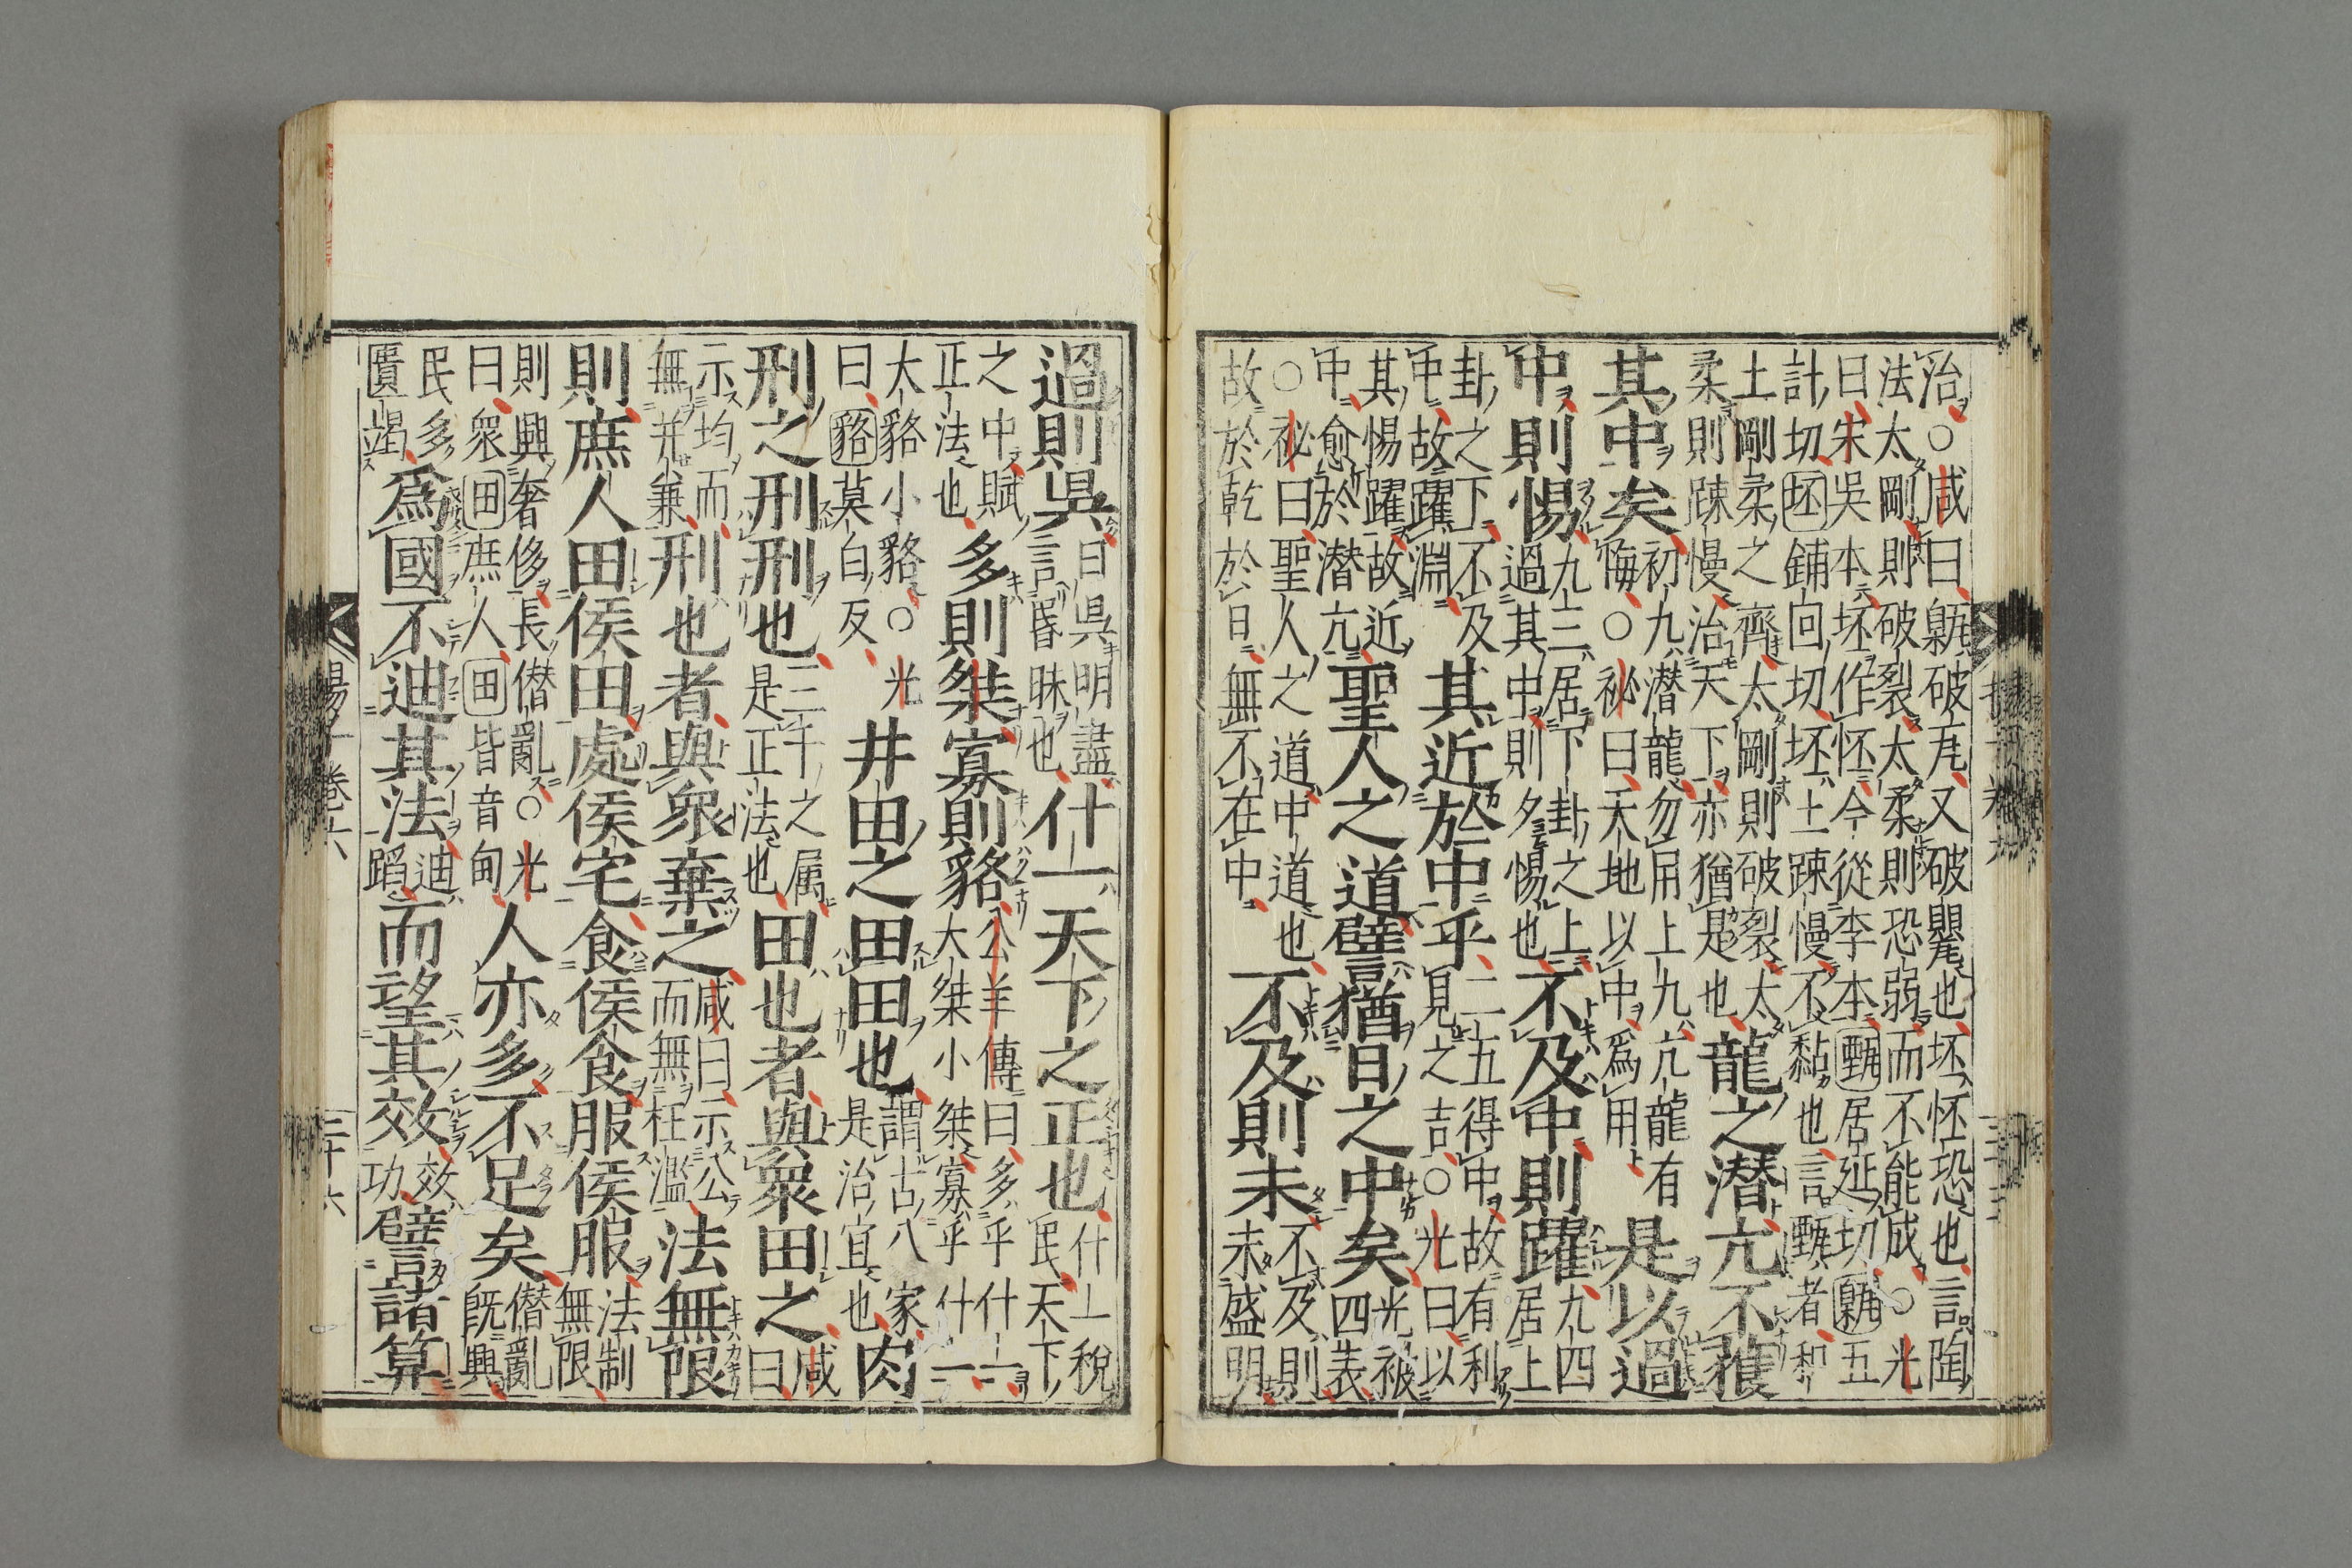 治○咸曰甈破瓦又破甖也坯怀恐也言陶
法太剛則破裂太柔則恐弱而不能成○光
曰宋吳本坯作怀今從李本甄居延切甈五
計切坯鋪回切坯土踈慢不黏也言甄者和
土剛柔之齊太剛則破裂太
柔則踈慢治天下亦猶是也
龍之潜亢不獲
其中矣
初九潜龍勿用上九亢龍有
悔○祕曰天地以中爲用
是以過
中則惕
九三居下卦之上
過其中則夕惕也
不及中則躍
九四居上
卦之下不及
中故躍淵
其近於中乎
二五得中故有利
見之吉○光曰以
其惕躍故近
中愈於潜亢
聖人之道譬猶日之中矣
光被
四表
○祕曰聖人之道中道也
故於乾於日無不在中
不及則未
不及則
未盛明
過則昃
日昃明盡
言昏昧也
什一天下之正也
什一稅
民天下
之中賦
正法也
多則桀寡則貉
公羊傳曰多乎什一
大桀小桀寡乎什一
大貉小貉○光
曰貉莫白反
井田之田田也
謂古八家
是治宜也
肉
刑之刑刑也
三千之属
是正法也
田也者與衆田之
咸曰
示均而
無并兼
刑也者與衆棄之
咸曰示公
而無枉濫
法無限
則庶人田侯田處侯宅食侯食服侯服
法制
無限
則興奢侈長僭亂○光
曰衆田庶人田皆音甸
人亦多不足矣
僭亂
既興
民多
匱竭
爲國不迪其法
迪
蹈
而望其效
效
功
譬諸算
揚子卷六
三十六